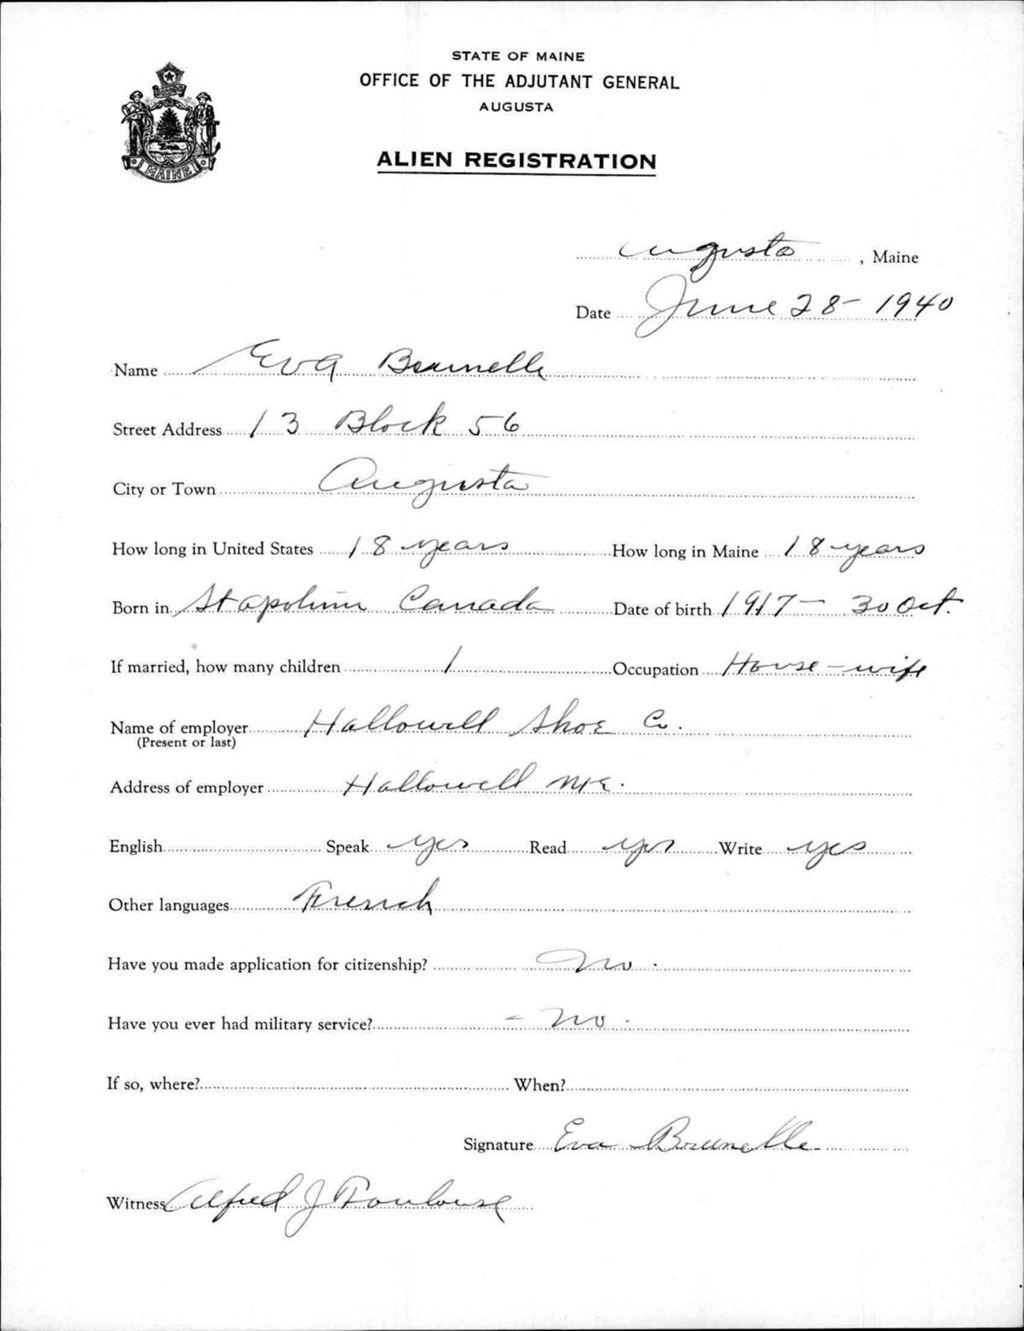 STATE OF MAINE
OFFICE OF THE ADJUTANT GENERAL
AUGUSTA
ALIEN REGISTRATION
MAINE
Augusta, Maine
Date June 28- 1940
Name Eva Brunelle
Street Address 13 Block 56
City or Town Augusta
How long in United States 18 years How long in Maine 18 years
Born in St apolinin Canada Date of birth 1917- 30 Oct.
If married, how many children 1 Occupation House-wife
Name of employer Hallowell Shoe Co.
(Present or last)
Address of employer Hallowell Me.
English Speak yes Read yes Write yes
Other languages French
Have you made application for citizenship? No.
Have you ever had military service? - No.
If so, where? When?
Signature Eva Brunelle
Witness Alfred J Toulouse